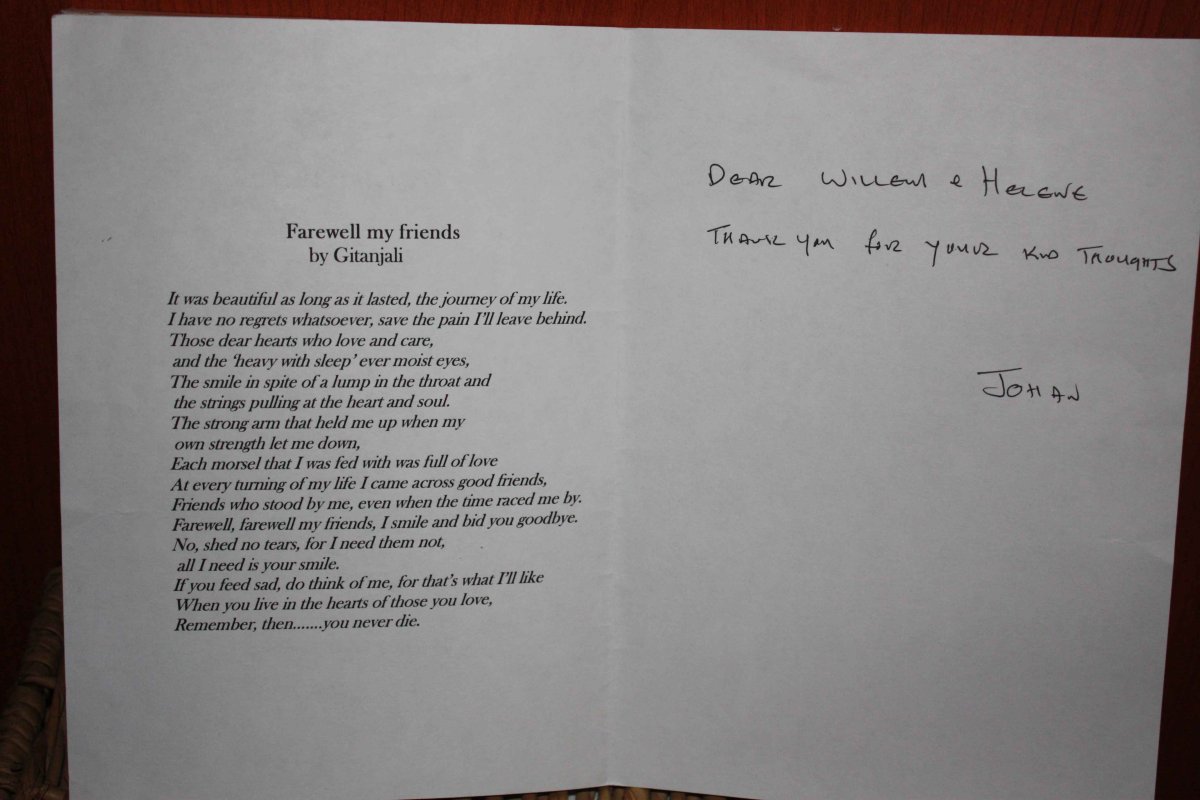 Farewell my friends
by Gitanjali
It was beautiful as long as it lasted, the journey of my life.
I have no regrets whatsoever, save the pain I'll leave behind.
Those dear hearts who love and care,
and the 'heavy with sleep' ever moist eyes,
The smile in spite of a lump in the throat and
the strings pulling at the heart and soul.
The strong arm that held me up when my
own strength let me down,
Each morsel that I was fed with was full of love
At every turning of my life I came across good friends,
Friends who stood by me, even when the time raced me by.
Farewell, farewell my friends, I smile and bid you goodbye.
No, shed no tears, for I need them not,
all I need is your smile.
If you feed sad, do think of me, for that's what I'll like
When you live in the hearts of those you love,
Remember, then.......you never die.
DEAR WILLEM & HELENE
THANK YOU FOR YOUR KIND THOUGHTS
JOHAN